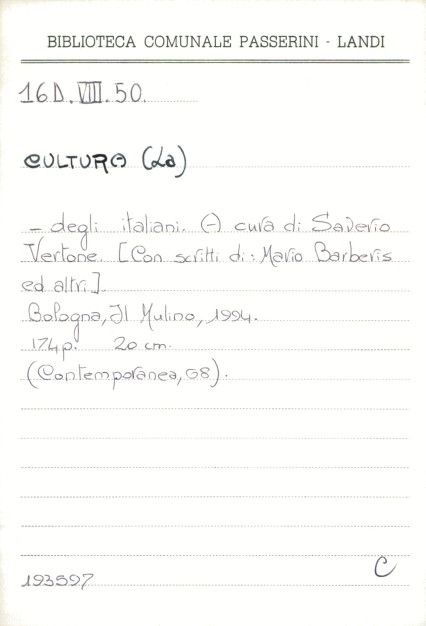 BIBLIOTECA COMUNALE PASSERINI - LANDI
16D.VIII.50.
CULTURA (La)
- degli italiani. (-) cura di Saverio
Vertone. [Con scritti di: Mario Barberis
ed altri].
Bologna, Il Mulino, 1994.
174p. 20 cm.
(Contemporanea, 68).
C
193597